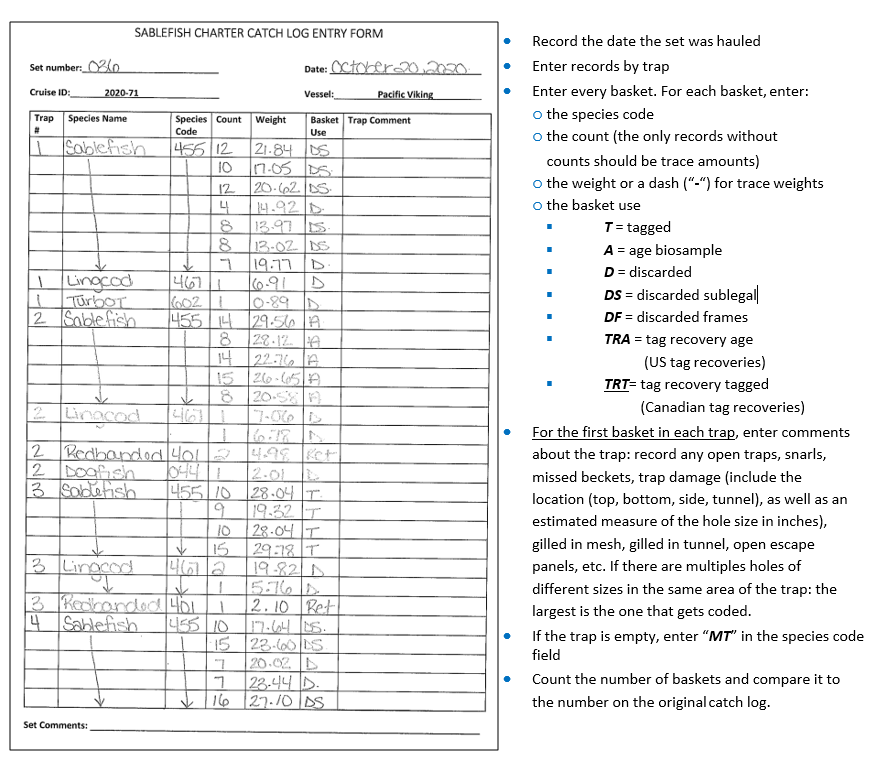 SABLEFISH CHARTER CATCH LOG ENTRY FORM
Set number: 036 Date: October 20, 2020
Cruise ID: 2020-71 Vessel: Pacific Viking
Trap # Species Name Species Code Count Weight Basket Use Trap Comment
1 Sablefish 455 12 21.84 DS
10 17.05 DS.
12 20.62 DS.
4 14.92 D.
8 13.97 DS.
8 13.02 DS
7 19.77 D.
1 Lingcod 467 1 6.91 D
1 Turbot 602 1 0.89 D
2 Sablefish 455 14 29.56 A
8 28.12 A
14 22.76 A
15 26.65 A
8 20.58 A
2 Lingcod 467 1 7.06 D
1 6.78 D
2 Redbanded 401 2 4.98 Ret
2 Dogfish 044 1 2.01 D
3 Sablefish 455 10 28.04 T
9 19.32 T
10 28.04 T
15 29.78 T
3 Lingcod 467 2 19.82 D
1 5.76 D.
3 Redbanded 401 1 2.10 Ret
4 Sablefish 455 10 17.64 DS.
15 23.60 DS
7 20.02 D
7 23.44 D.
16 27.10 DS
Set Comments:
• Record the date the set was hauled
• Enter records by trap
• Enter every basket. For each basket, enter:
o the species code
o the count (the only records without
counts should be trace amounts)
o the weight or a dash ("-") for trace weights
o the basket use
▪ T = tagged
▪ A = age biosample
▪ D = discarded
▪ DS = discarded sublegal
▪ DF = discarded frames
▪ TRA = tag recovery age
(US tag recoveries)
▪ TRT= tag recovery tagged
(Canadian tag recoveries)
• For the first basket in each trap, enter comments
about the trap: record any open traps, snarls,
missed beckets, trap damage (include the
location (top, bottom, side, tunnel), as well as an
estimated measure of the hole size in inches),
gilled in mesh, gilled in tunnel, open escape
panels, etc. If there are multiples holes of
different sizes in the same area of the trap: the
largest is the one that gets coded.
• If the trap is empty, enter "MT" in the species code
field
• Count the number of baskets and compare it to
the number on the original catch log.